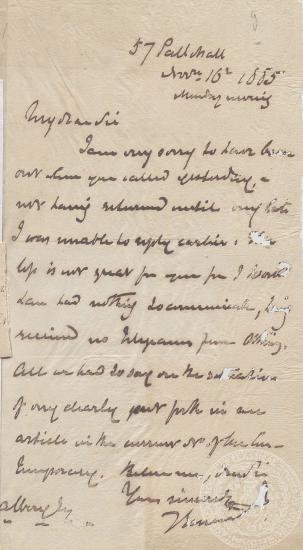 57 Pall Mall
Novr 16th 1885
Monday morning
My dear Sir
I am very sorry to have been
out when you called yesterday, &
not having returned until very late
I was unable to reply earlier. The
loss is not great for you for I should
have had nothing to communicate, having
received no telegrams from
All we had to say on the
is very clearly put forth in an
article in the current No. of the Con-
temporary. Believe me, dear Sir
Yours sincerely